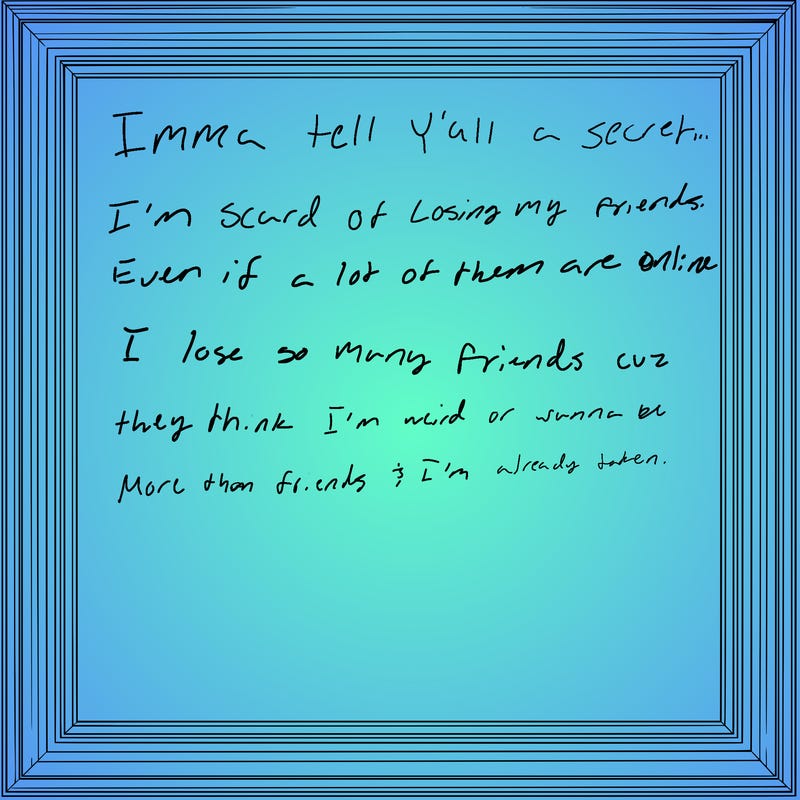 Imma tell Y'all a secret...
I'm scard of Losing my friends.
Even if a lot of them are online
I lose so many friends cuz
they think I'm weird or wanna be
More than friends & I'm already taken.